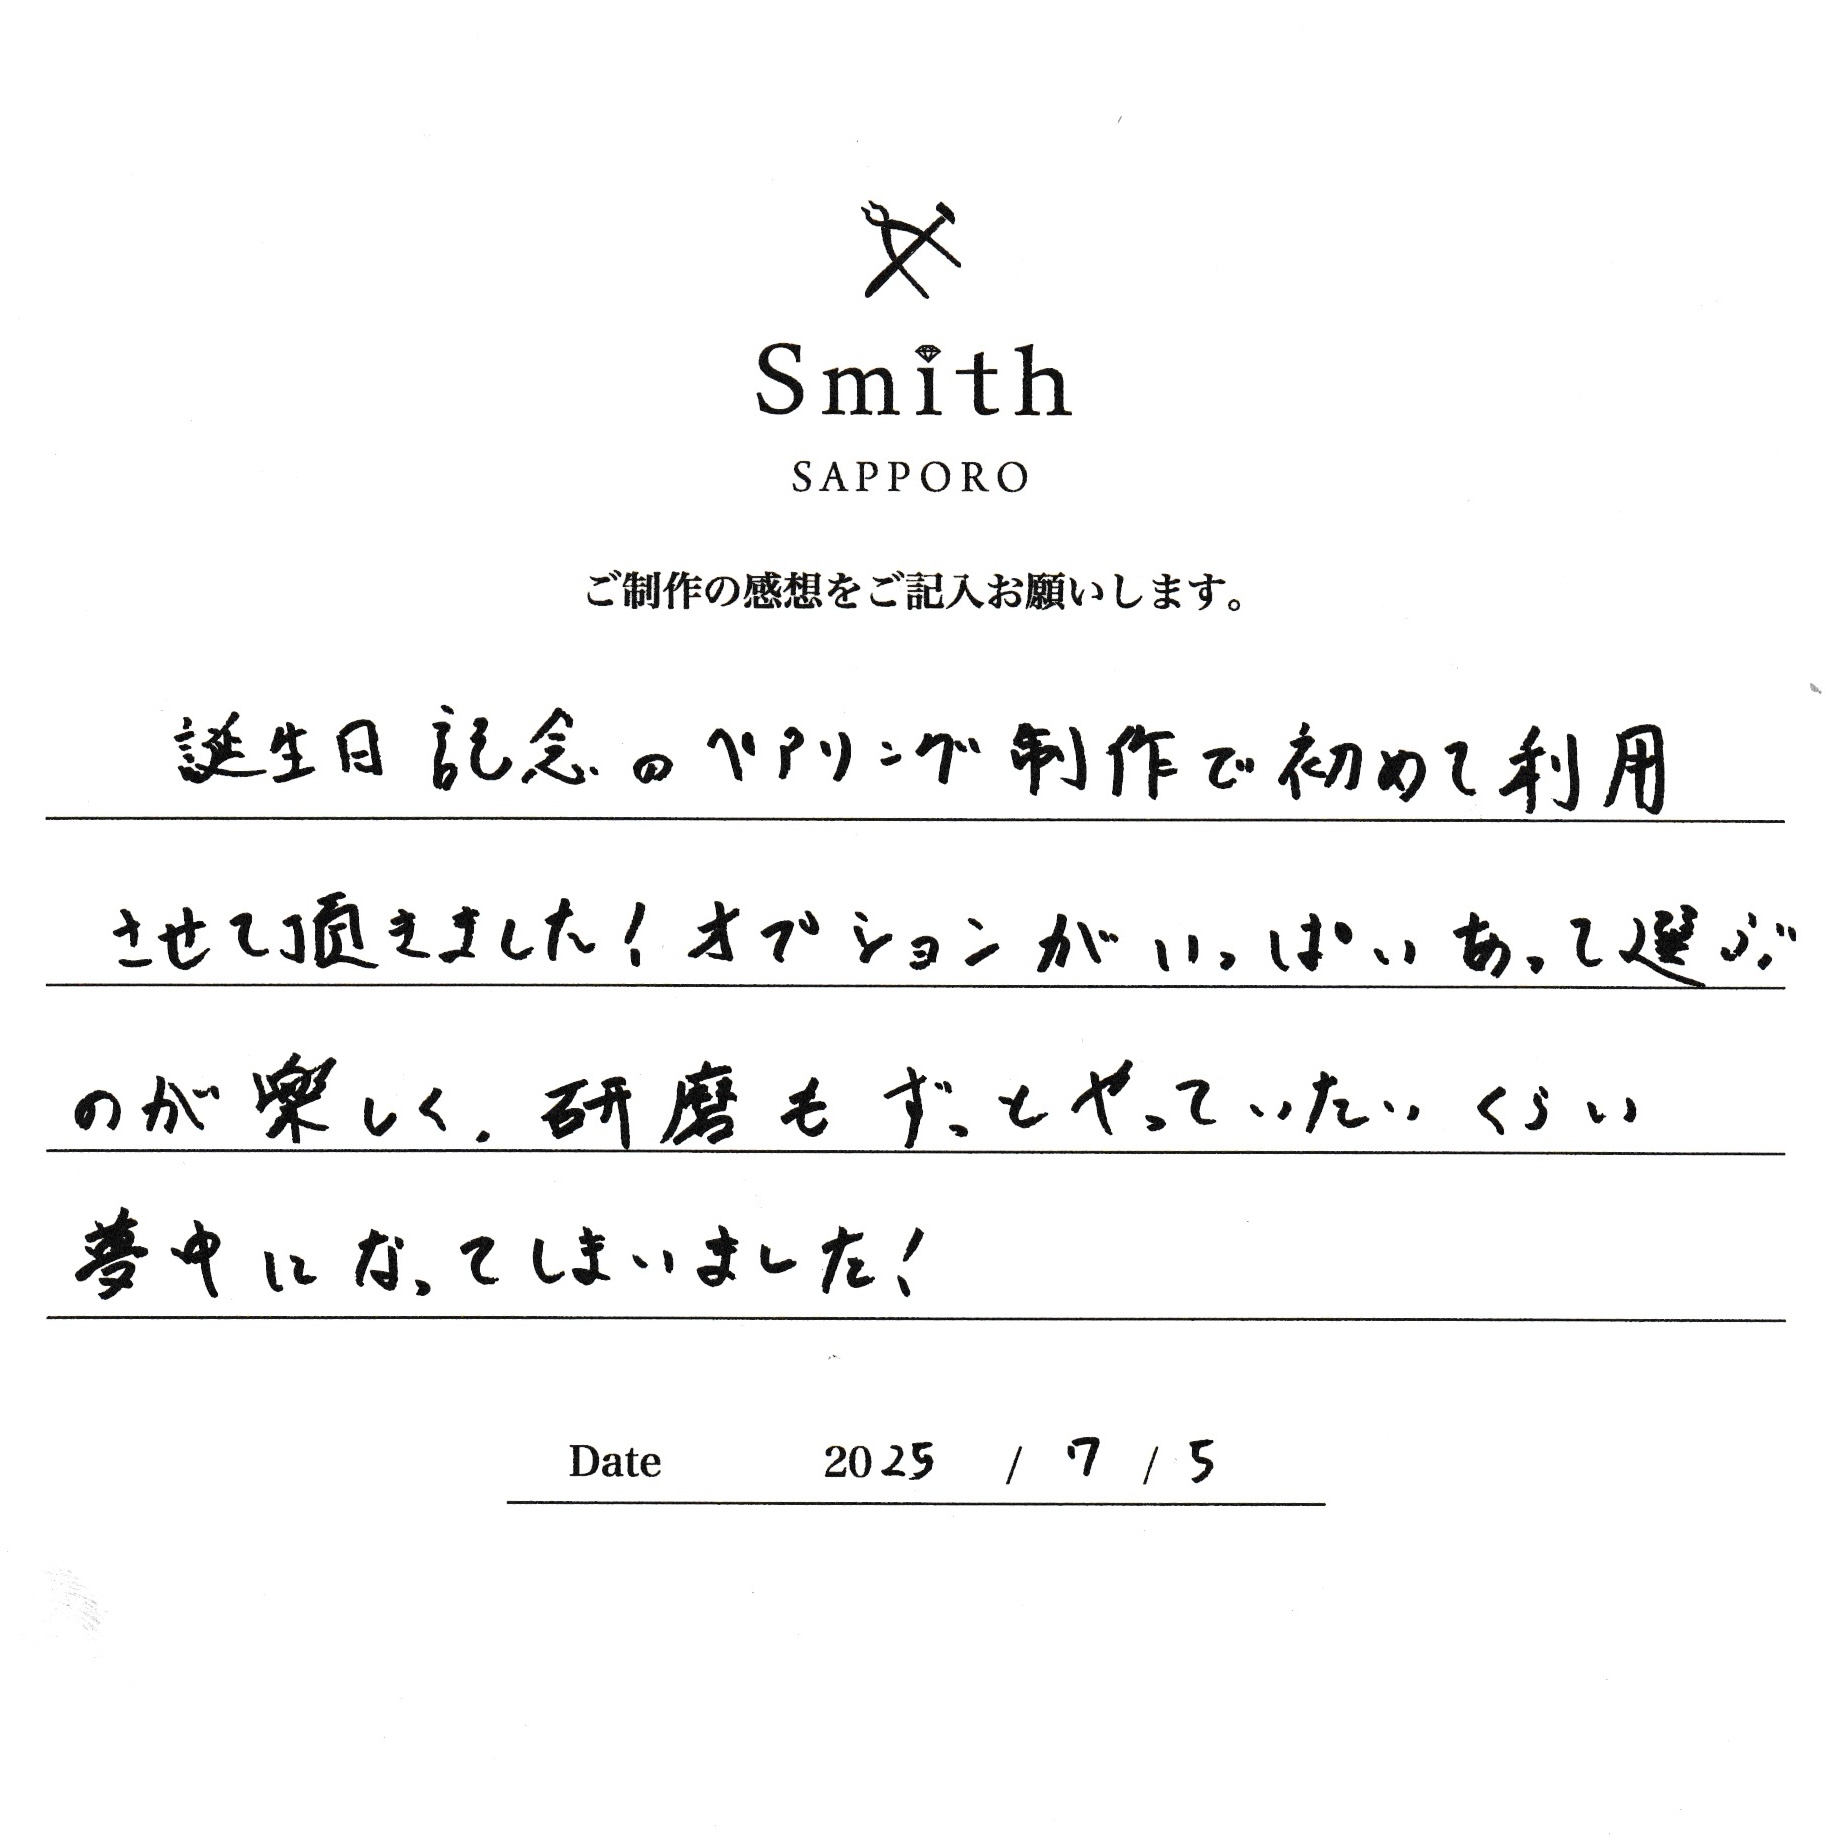 Smith
SAPPORO
ご制作の感想をご記入お願いします。
誕生日記念のペアリング制作で初めて利用
させて頂きました！オプションがいっぱいあって選ぶ
のが楽しく、研磨もずっとやっていたいくらい
夢中になってしまいました！
Date 2025 / 7 / 5